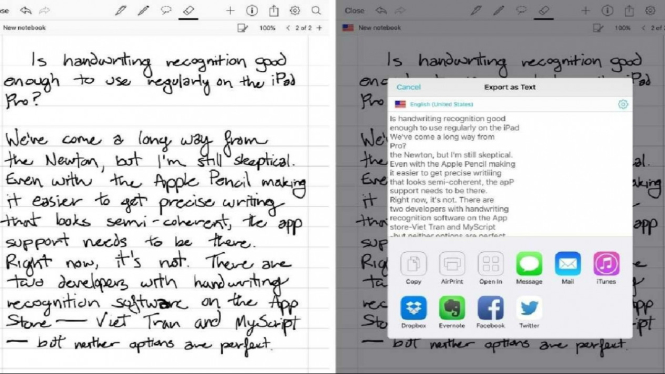 Close
New notebook
100%
2 of 2
Is handwriting recognition good
enough to use regularly on the iPad
Pro?
We've come a long way from
the Newton, but I'm still skeptical.
Even with the Apple Pencil making
it easier to get precise writing
that looks semi-coherent, the app
support needs to be there.
Right now, it's not. There are
two developers with handwriting
recognition software on the App
Store — Viet Tran and MyScript
— but neither options are perfect.
Close
100%
2 of 2
Is handwriting recognition good
Cancel
Export as Text
English (United States)
Is handwriting recognition good
enough to use regularly on the iPad
We've come a long way from
Pro?
the Newton, but I'm still skeptical.
Even with the Apple Pencil making
it easier to get precise writiiing
that looks semi-coherent, the apP
support needs to be there.
Right now, it's not. There are
two developers with handwriting
recognition software on the App
store-Viet Tran and MyScript
-but neither options are perfect
Copy
AirPrint
Open in
Message
Mail
iTunes
Dropbox
Evernote
Facebook
Twitter
— but neither options are perfect.